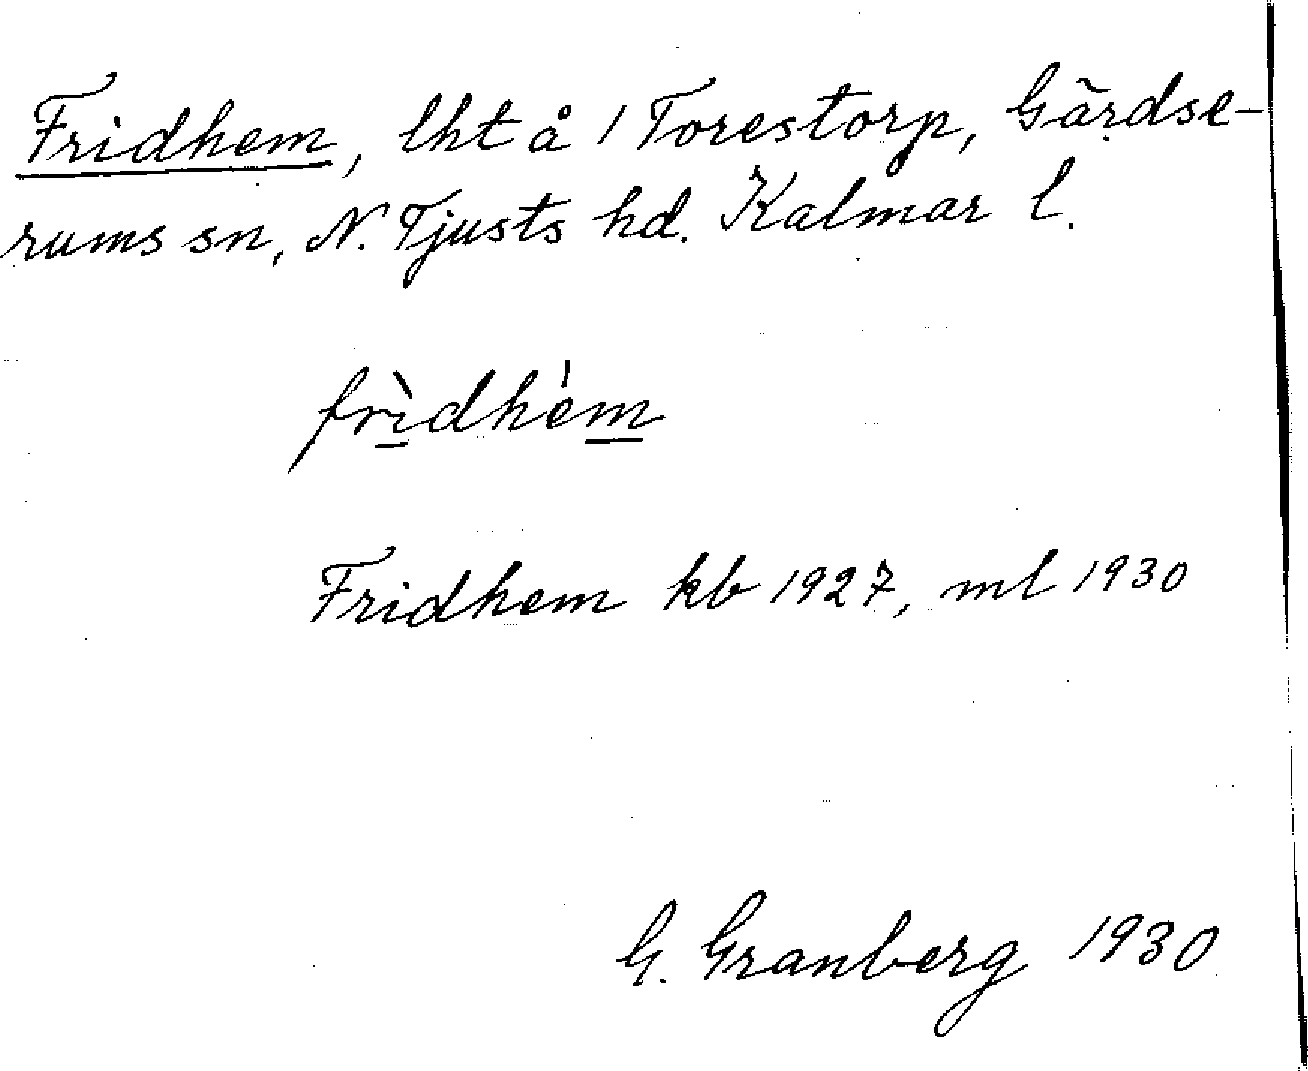 Fridhem, lht å 1 Torestorp, Gärdse-
rums sn, N. Tjusts hd. Kalmar l.
frìdhèm
Fridhem kb 1927, ml 1930
G. Granberg 1930